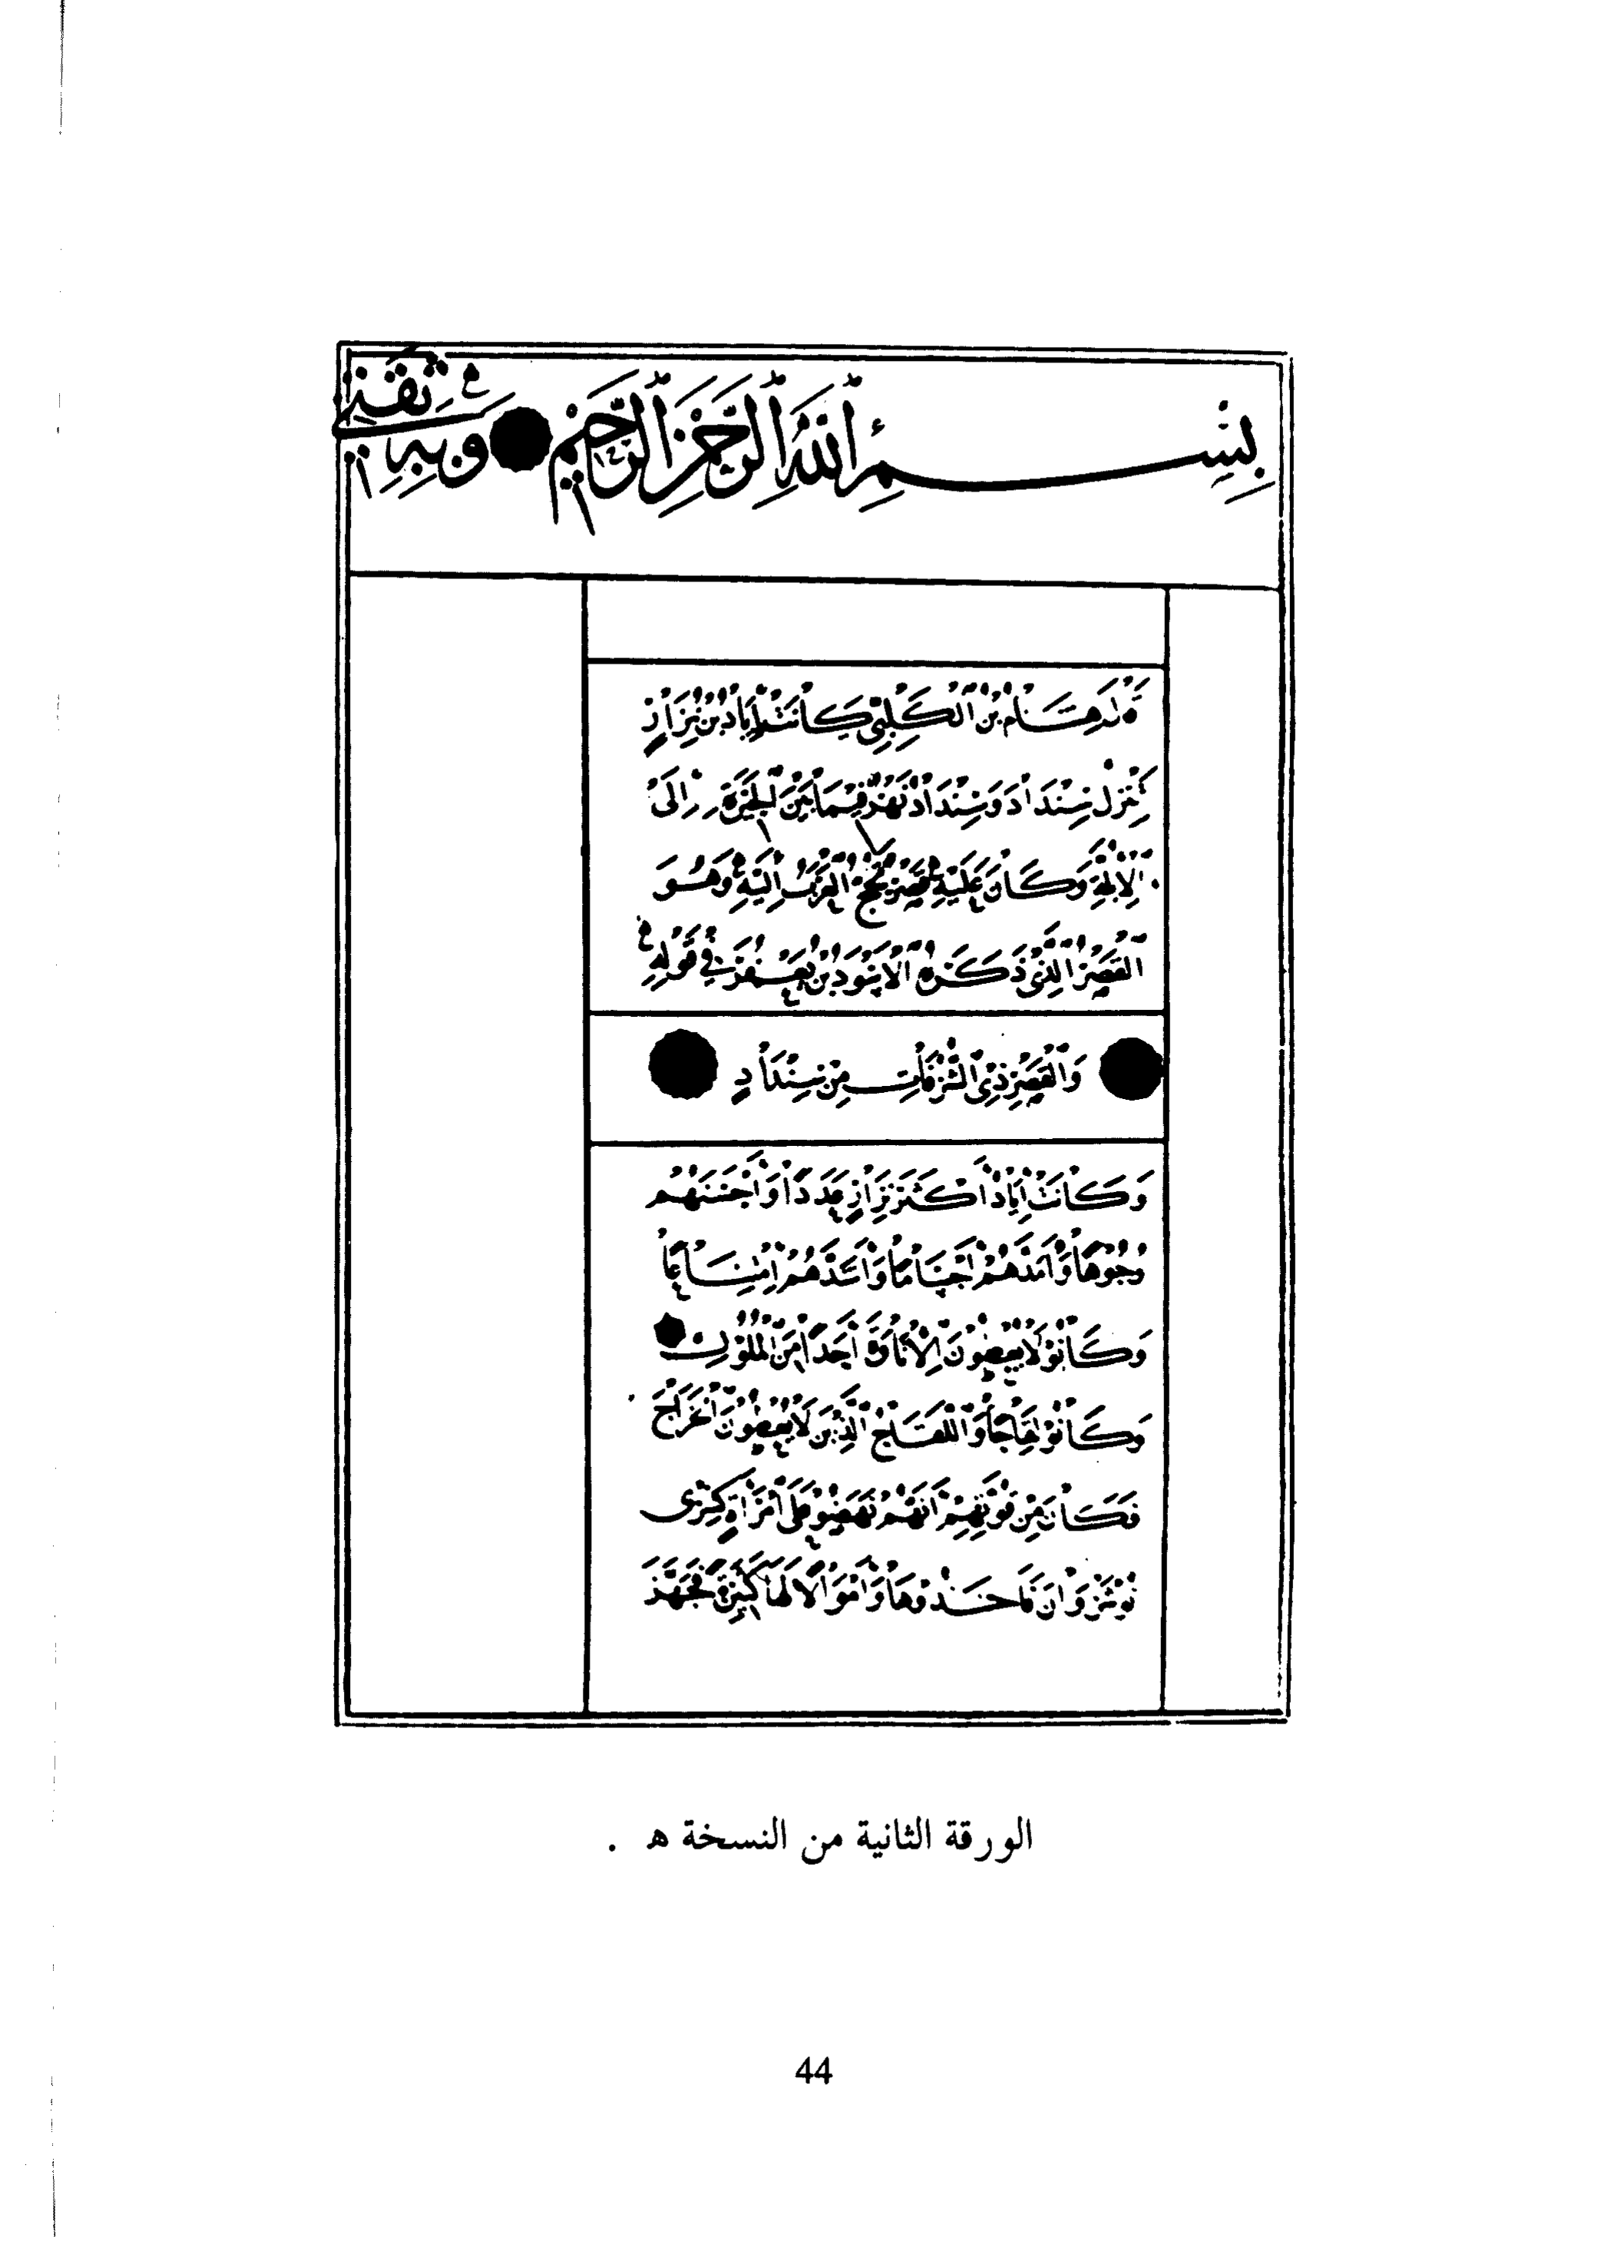 بِسْمِ اللَّهِ الرَّحْمَنِ الرَّحِيمِ وَبِهِ ثِقَتِي
قَالَ هِشَامُ بْنُ الْكَلْبِيِّ كَانَتْ إِيَادُ بْنُ نِزَارٍ
تَنْزِلُ سِنْدَادَ وَسِنْدَادُ نَهْرٌ فِيمَا بَيْنَ الْحِيرَةِ إِلَى
الْأُبُلَّةِ وَكَانَ عَلَيْهِ قَصْرٌ تَحُجُّ الْعَرَبُ إِلَيْهِ وَهُوَ
الْقَصْرُ الَّذِي ذَكَرَهُ الْأَسْوَدُ بْنُ يَعْفُرَ فِي قَوْلِهِ
وَالْقَصْرِ ذِي الشُّرُفَاتِ مِنْ سِنْدَادِ
وَكَانَتْ إِيَادُ أَكْثَرَ نِزَارٍ عَدَدًا وَأَحْسَنَهُمْ
وُجُوهًا وَأَمَدَّهُمْ أَجْسَامًا وَأَشَدَّهُمُ امْتِنَاعًا
وَكَانُوا لَا يُعْطُونَ الْإِتَاوَةَ أَحَدًا مِنَ الْمُلُوكِ
وَكَانُوا لَقَاحًا وَاللَّقَاحُ الَّذِينَ لَا يُعْطُونَ الْخَرَاجَ
فَكَانَ مِنْ قُوَّتِهِمْ أَنَّهُمْ عَلَى امْرَأَةِ كِسْرَى
نُوشَرْوَانَ فَأَخَذُوهَا وَأَمْوَالًا لَهَا كَثِيرَةً فَجَهَّزَ
الورقة الثانية من النسخة هـ .
44